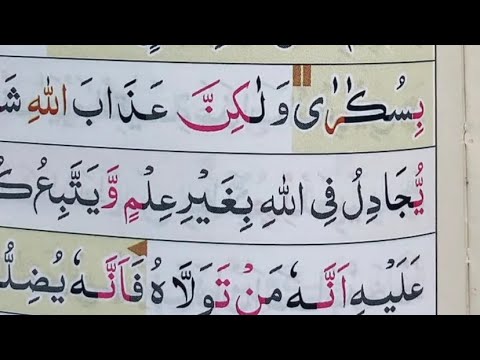 بِسُكٰرٰى وَلٰكِنَّ عَذَابَ اللّٰهِ
يُّجَادِلُ فِى اللّٰهِ بِغَيْرِ عِلْمٍ وَّيَتَّبِعُ
عَلَيْهِ اَنَّهٗ مَنْ تَوَلَّاهُ فَاَنَّهٗ يُضِلُّ